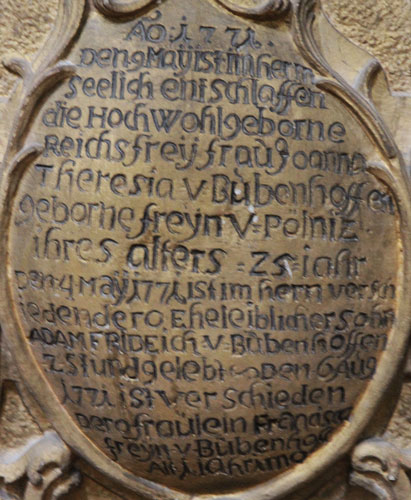 Aõ. 1771.
Den 9 Maÿ ist im herrn
seelich entschlaffen
die HochWohlgeborne
Reichsfreÿfrau Joanna
Theresia v Bubenhoffen
geborne freÿn v: Pölniz
ihres alters = 25 = iahr
Den 4 Maÿ 1771 ist im hern versch
ieden dero Eheleiblicher sohn
ADAM FRIDEICH v. Bubenhoffen
2 stund gelebt Den 6 Aug
1771 ist verschieden
Dero fraülein
freÿn v Bubenhof
Alt 1 iahr